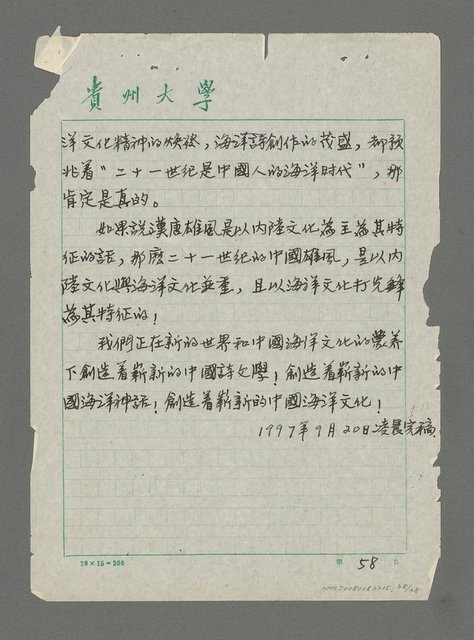 貴州大學
洋文化精神的煥發，海洋詩創作的茂盛，都預
兆着“二十一世紀是中國人的海洋时代”，那
肯定是真的。
如果說漢唐雄風是以内陸文化為主為其特
征的話，那麽二十一世紀的中國雄風，是以内
陸文化與海洋文化並重，且以海洋文化打先鋒
為其特征的！
我們正在新的世界和中國海洋文化的营养
下創造着嶄新的中國詩文學！創造着嶄新的中
國海洋神話！創造着嶄新的中國海洋文化！
1997年9月20日凌晨完稿
20×15=300
第 58